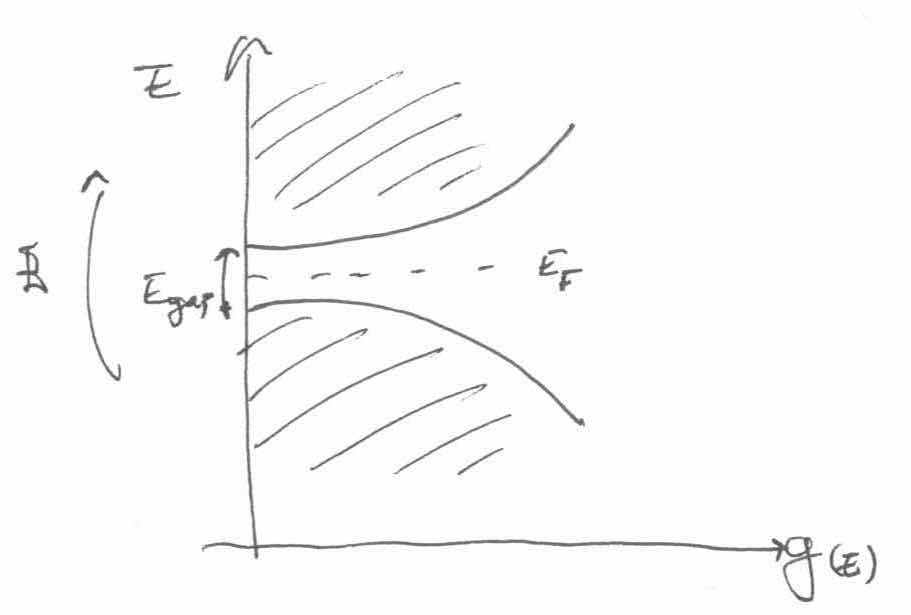 E
E_gap
E_F
g(E)